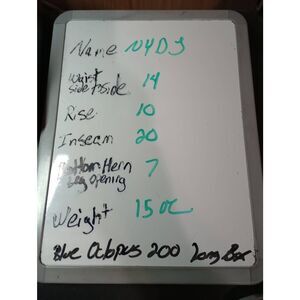 Name NYDJ
Waist side to side 14
Rise 10
Inseam 20
Bottom Hem Leg Opening 7
Weight 15 oz
Blue Octopus 200 Long Box